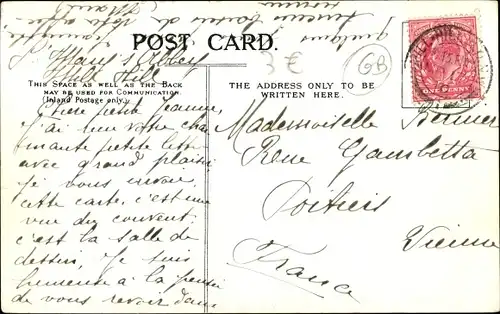 POST CARD.
3€
GB
THIS SPACE AS WELL AS THE BACK
MAY BE USED FOR COMMUNICATION
(Inland Postage only.)
THE ADDRESS ONLY TO BE
WRITTEN HERE.
ONE PENNY
St Mary's Abbey
Mill Hill
Chère petite Jeanne,
J'ai reçu votre char
mante petite lettre
avec grand plaisir
Je vous envoie
cette carte, c'est une
vue du couvent;
c'est la salle de
dessin, Je suis
heureuse à la pensée
de vous revoir dans
quelques
Mademoiselle
Rue Gambetta
Poitiers
Vienne
France